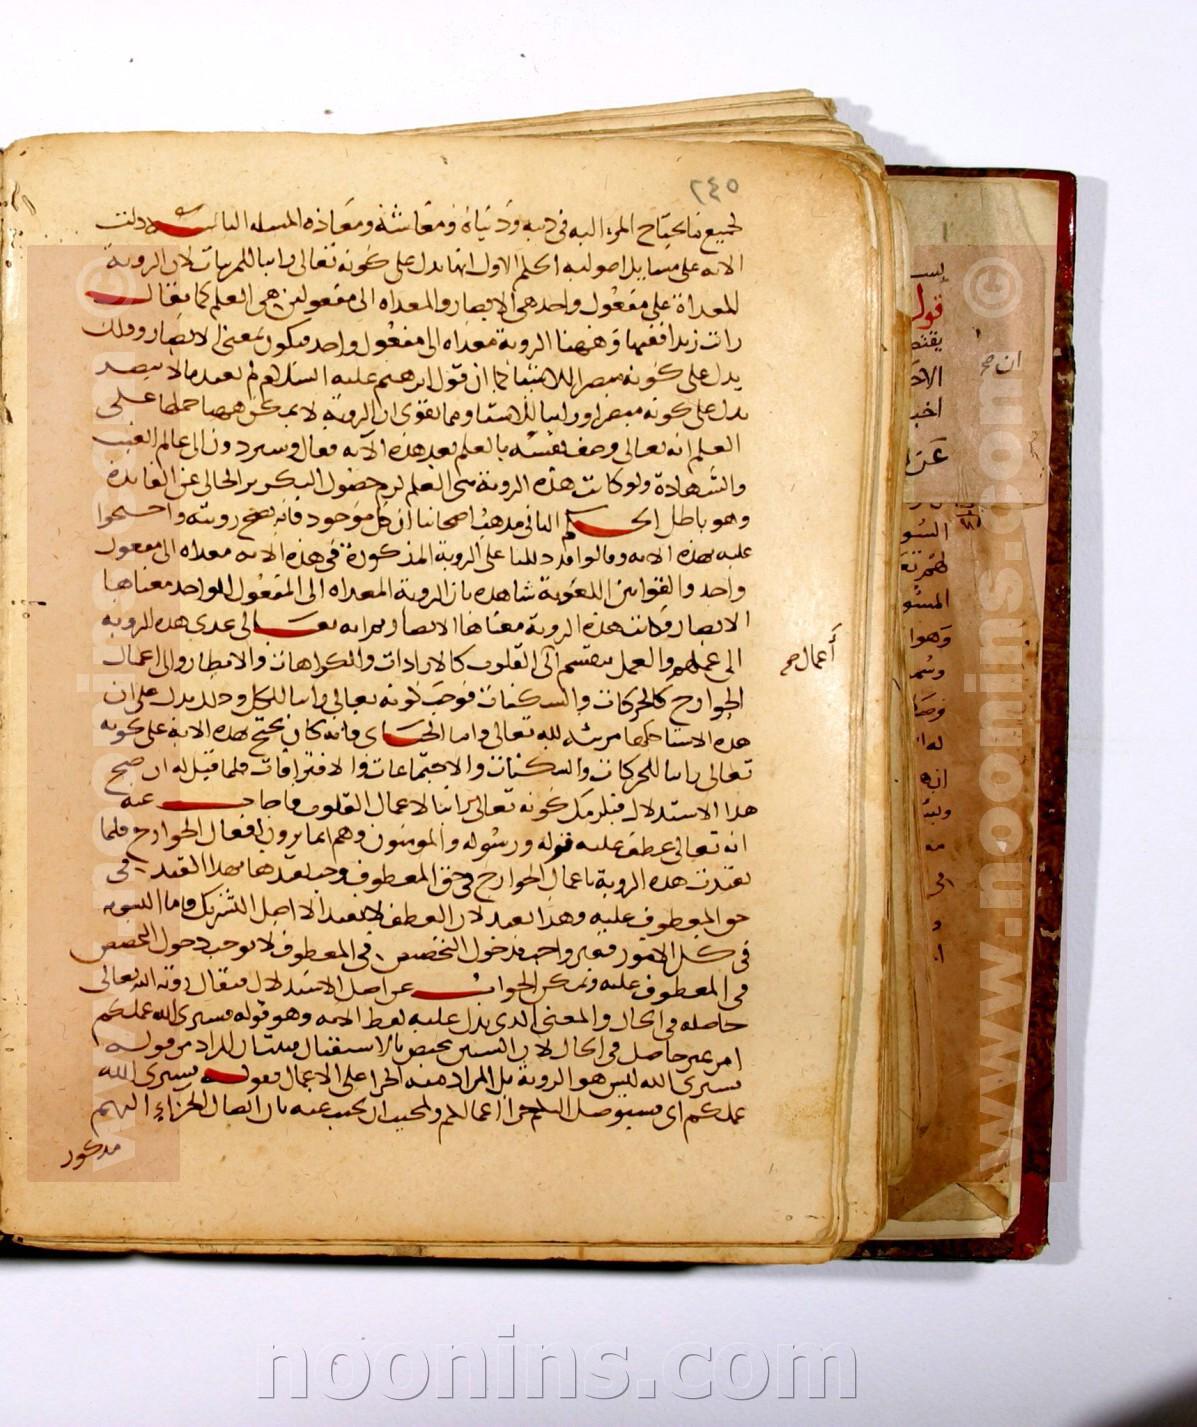 ٢٤٥
لجميع ما يحتاج المرء اليه في دينه ودنياه ومعاشه ومعاده المسله الثانيه دلت
الايه على مسايل اصوليه الحكم الاول انها تدل على كونه تعالى رايا للمرييات لان الرويه
المعداة على مفعول واحد هي الابصار والمعداه الى مفعولين هي العلم كما يقال
رايت زيدا فقيها وههنا الرويه معداه الى مفعول واحد فيكون بمعنى الابصار وذلك
يدل على كونه مبصرا للاشيا كما ان قول ابرهيم عليه السلام لم تعبد ما لا يبصر
يدل على كونه مبصرا ورايا للاشيا ومما يقوى ان الرويه لا يمكن ههنا حملها على
العلم انه تعالى وصف نفسه بالعلم بعد هذه الآيه فقال وستردون الى عالم الغيب
والشهادة ولو كانت هذه الروية هى العلم لزم حصول التكرير الخالى عن الفايدة
وهو باطل الحكم الثانى مذهب اصحابنا ان كل موجود فانه يصح رويته واحتجوا
عليه بهذه الايه وقالوا قد دللنا على الروية المذكورة فى هذه الايه معداه الى مفعول
واحد والقوانين اللغوية شاهده بان الروية المعداه الى المفعول الواحد معناها
الابصار فكانت هذه الروية معناها الابصار ثم انه تعالى عدى هذه الرويه
الى عملهم والعمل ينقسم الى اعمال القلوب كالارادات والكراهات والانظار والى اعمال
الجوارح كالحركات والسكنات فوجب كونه تعالى رايا للكل وذلك يدل على ان
هذه الاشيا كلها مرئيه لله تعالى واما الجباى فانه كان يحتج بهذه الاية على كونه
تعالى رايا للحركات والسكنات والاجتماعات والافتراقات فلما قيل له ان صح
هذا الاستدلال فيلزمك كونه تعالى رايا لاعمال القلوب فاجاب عنه
انه تعالى عطف عليه قوله ورسوله والمومنون وهم انما يرون افعال الجوارح فلما
تقيدت هذه الروية باعمال الجوارح في حق المعطوف وجب تقيدها بهذا القيد فى
حق المعطوف عليه وهذا بعيد لان العطف لا يفيد الا اصل التشريك فاما التسويه
فى كل الامور فغير واجب فدخول التخصيص فى المعطوف لا يوجب دخول التخصيص
فى المعطوف عليه ويمكن الجواب عن اصل الاستدلال فيقال روية الله تعالى
حاصله فى الحال والمعنى الذى يدل عليه لفظ الايه وهو قوله فسيرى الله عملكم
امر غير حاصل فى الحال لان السين يختص بالاستقبال فثبت ان المراد من قوله
فسيرى الله ليس هو الروية بل المراد منه الجزا على الاعمال فقوله فسيرى الله
عملكم اى فسيوصل اليكم جزا اعمالكم ولمجيب ان يجيب عنه بان ايصال الجزاء اليهم
مذكور
أعمال صح
ان صح
قول
noonins.com
www.noonins.com ©
www.noonins.com ©